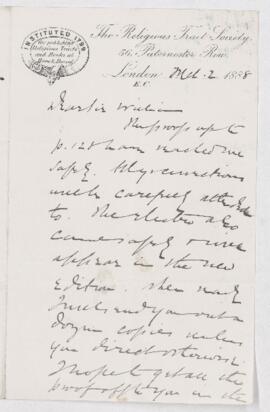 INSTITUTED 1799
The Religious Tract Society
56, Paternoster Row
London Feb. 2 1888
E.C.
Dear Sir William
The proofs up to
p. 128 have reached me
safely. All corrections
will be carefully attended
to. The electro also
came safely &
appear in the new
Edition. When ready
I will send you out a
dozen copies unless
you direct otherwise.
I hope to get all the
proof off to you in the